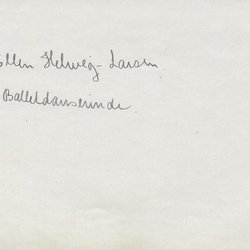 Ellen Helweg-Larsen
Balletdanserinde